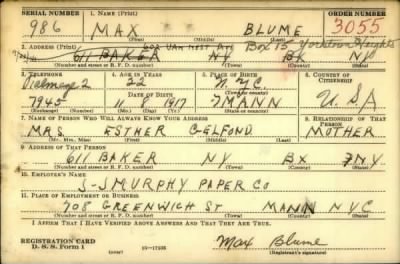 SERIAL NUMBER 1. NAME (Print) ORDER NUMBER
986 MAX BLUME 3055
(First) (Middle) (Last)
2. ADDRESS (Print) 602 VAN NEST AVE Box 15 Yorktown Heights
611 BAKER NY BX NY
(Number and street or R. F. D. number) (Town) (County) (State)
3. TELEPHONE 4. AGE IN YEARS 5. PLACE OF BIRTH 6. COUNTRY OF CITIZENSHIP
2 N.Y.C.
DATE OF BIRTH (Town or county)
7945 11 1917 MANN U.SA
(Exchange) (No.) (Mo.) (Day) (Yr.) (State or country)
7. NAME OF PERSON WHO WILL ALWAYS KNOW YOUR ADDRESS 8. RELATIONSHIP OF THAT PERSON
MRS ESTHER GELFOND MOTHER
(Mr., Mrs., Miss) (First) (Middle) (Last)
9. ADDRESS OF THAT PERSON
611 BAKER NY BX NY
(Number and street or R. F. D. number) (Town) (County) (State)
10. EMPLOYER'S NAME
J-J MURPHY PAPER CO
11. PLACE OF EMPLOYMENT OR BUSINESS
708 GREENWICH ST MANN NYC
(Number and street or R. F. D. number) (Town) (County) (State)
I AFFIRM THAT I HAVE VERIFIED ABOVE ANSWERS AND THAT THEY ARE TRUE.
REGISTRATION CARD
D. S. S. Form 1 Max Blume
(Registrant's signature)